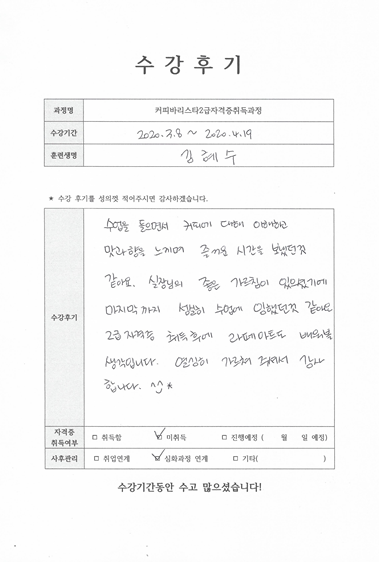 수 강 후 기
과정명 커피바리스타2급자격증취득과정
수강기간 2020.3.8 ~ 2020.4.19
훈련생명 김혜수
* 수강 후기를 성의껏 적어주시면 감사하겠습니다.
수강후기
수업을 들으면서 커피에 대해 이해하고
맛과 향을 느끼며 즐거운 시간을 보냈던것
같아요. 실장님의 좋은 가르침이 있으셨기에
마지막까지 성실히 수업에 임했던것 같아요
2급 자격증 취득 후에 라떼아트도 배워볼
생각입니다. 열심히 가르쳐 주셔서 감사
합니다. ^^*
자격증 취득여부 □ 취득함 ☑ 미취득 □ 진행예정 ( 월 일 예정)
사후관리 □ 취업연계 ☑ 심화과정 연계 □ 기타( )
수강기간동안 수고 많으셨습니다!